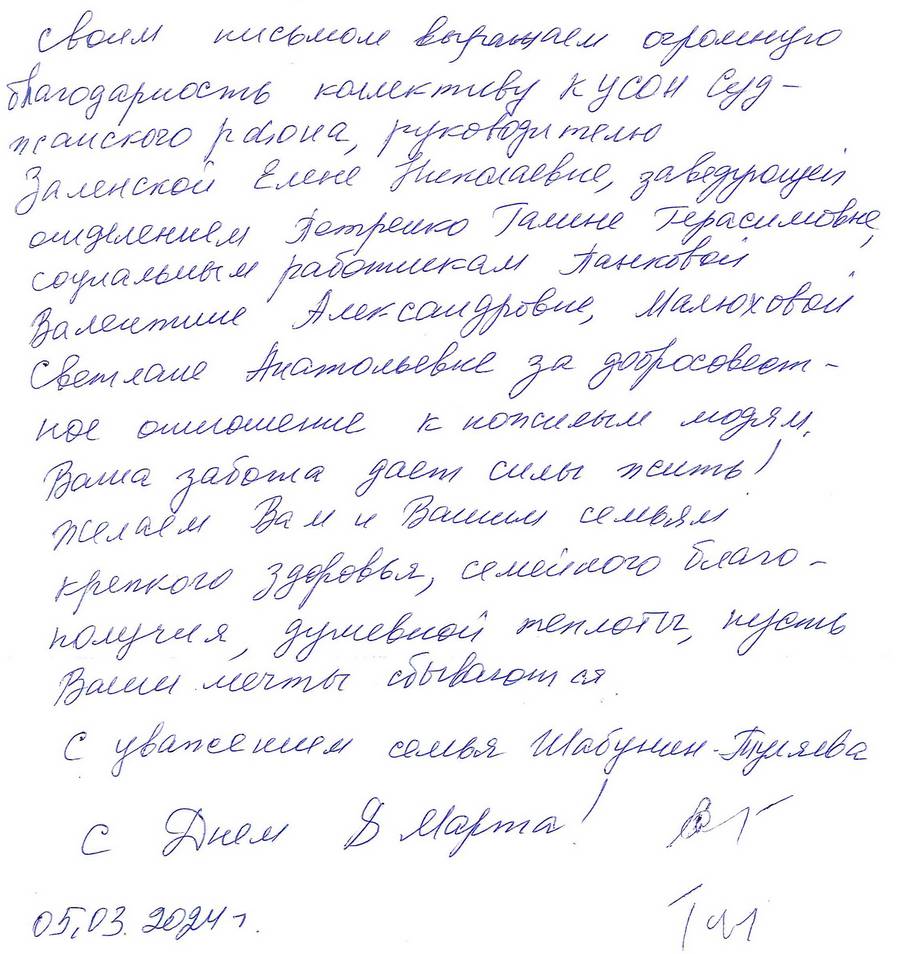 Своим письмом выражаем огромную
благодарность коллективу КУСОН Суд-
жанского района, руководителю
Заленской Елене Николаевне, заведующей
отделением Петренко Галине Герасимовне,
социальным работникам Панковой
Валентине Александровне, Малюховой
Светлане Анатольевне за добросовест-
ное отношение к пожилым людям.
Ваша забота дает силы жить!
Желаем Вам и Вашим семьям
крепкого здоровья, семейного благо-
получия, душевной теплоты, пусть
Ваши мечты сбываются
С уважением семья Шабунин-Туляева
С Днем 8 Марта!
05.03.2024 г.